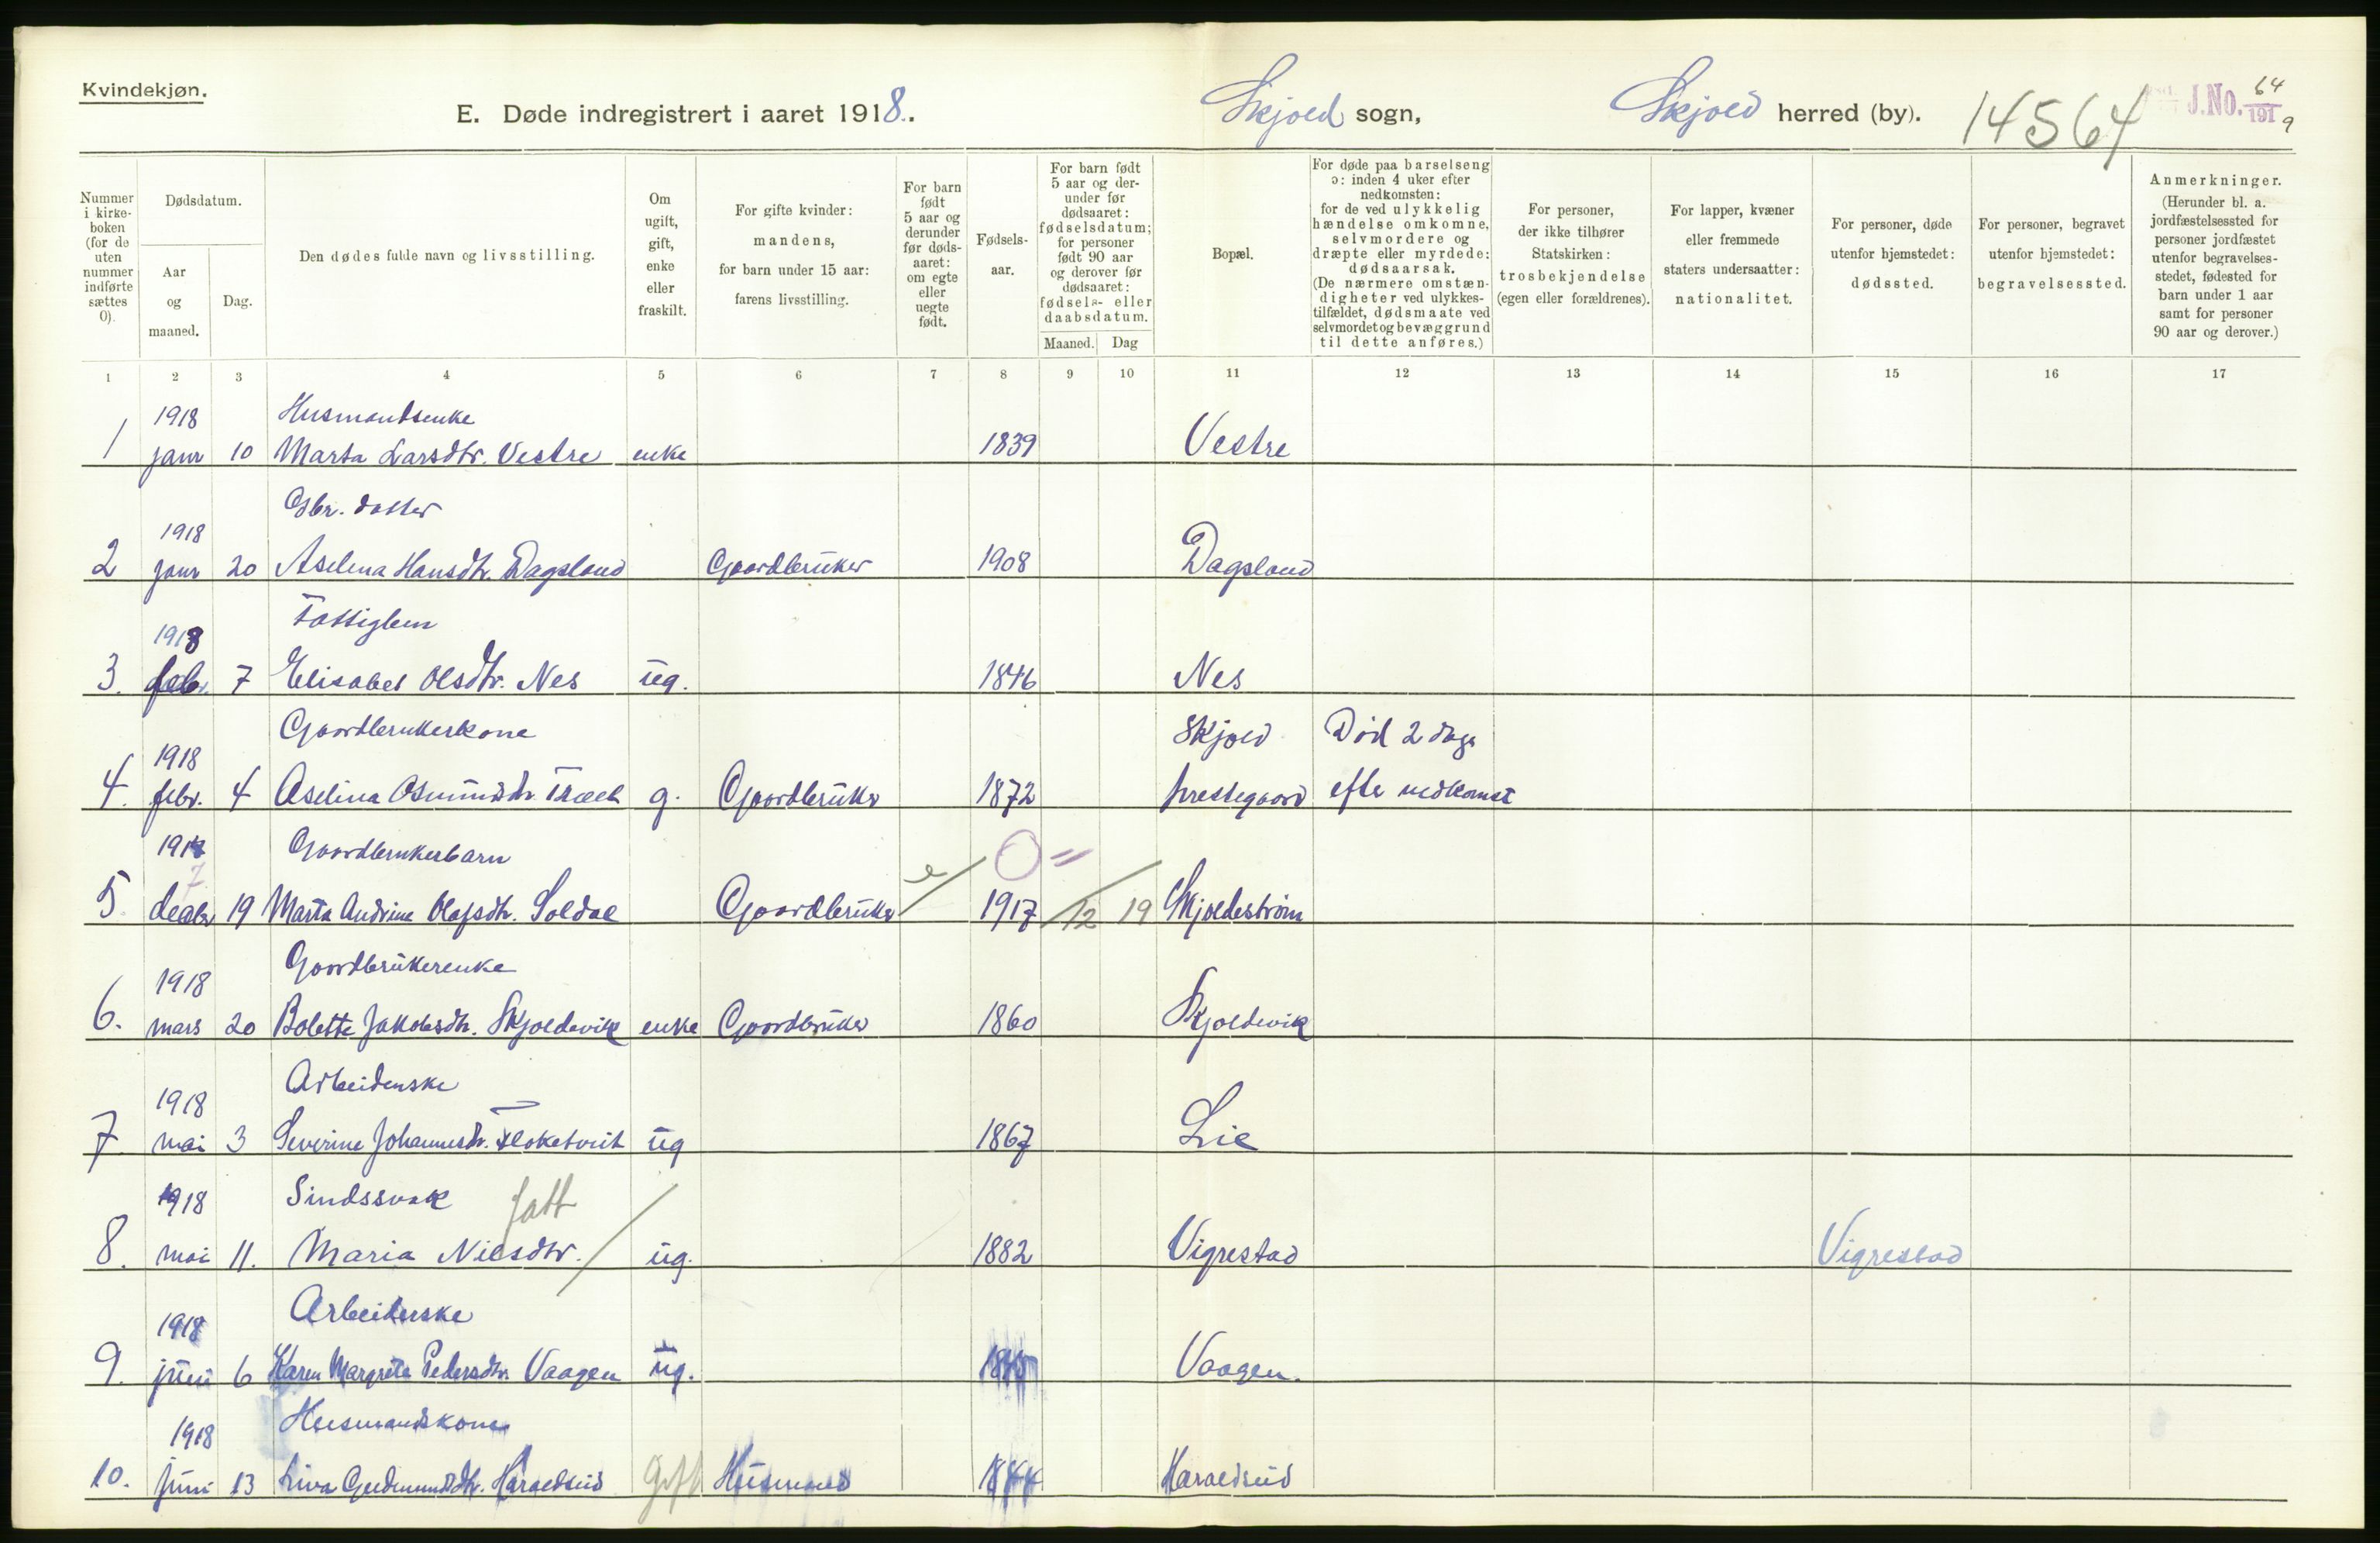 Kvindekjøn.
E. Døde indregistrert i aaret 1918.
Skjold sogn,
Skjold herred (by).
14564
J.No. 64/1919
Nummer i kirkeboken (for de uten nummer indførte sættes 0).
Dødsdatum.
Aar og maaned.
Dag.
Den dødes fulde navn og livsstilling.
Om ugift, gift, enke eller fraskilt.
For gifte kvinder: mandens, for barn under 15 aar: farens livsstilling.
For barn født 5 aar og derunder før dødsaaret: om egte eller uegte født.
Fødselsaar.
For barn født 5 aar og derunder før dødsaaret: fødselsdatum; for personer født 90 aar og derover før dødsaaret: fødsels- eller daabsdatum.
Maaned.
Dag
Bopæl.
For døde paa barselseng ɔ: inden 4 uker efter nedkomsten: for de ved ulykkelig hændelse omkomne, selvmordere og dræpte eller myrdede: dødsaarsak. (De nærmere omstændigheter ved ulykkestilfældet, dødsmaate ved selvmordet og bevæggrund til dette anføres.)
For personer, der ikke tilhører Statskirken: trosbekjendelse (egen eller forældrenes).
For lapper, kvæner eller fremmede staters undersaatter: nationalitet.
For personer, døde utenfor hjemstedet: dødssted.
For personer, begravet utenfor hjemstedet: begravelsessted.
Anmerkninger. (Herunder bl. a. jordfæstelsessted for personer jordfæstet utenfor begravelsesstedet, fødested for barn under 1 aar samt for personer 90 aar og derover.)
1 2 3 4 5 6 7 8 9 10 11 12 13 14 15 16 17
1918 Husmandsenke
1 janr 10 Marta Larsdtr. Vestre enke 1839 Vestre
1918 Gbr. datter
2 janr 20 Aselina Hansdtr. Dagsland Gaardbruker 1908 Dagsland
1918 Fattiglem
3. febr. 7 Elisabet Olsdtr. Nes ug. 1846 Nes
1918 Gaardbrukerkone Skjold Død 2 dage
4. febr. 4 Aselina Osmundsdtr g. Gaardbruker 1872 prestegaard efter nedkomst
1917 Gaardbrukerbarn
5 decbr 19 Marta Andrine Olafsdtr. Soldal Gaardbruker e 1917 12 19 Skjoldestrøm
1918 Gaardbrukerenke
6. mars 20 Bolette Jakobsdtr. Skjoldevik enke Gaardbruker 1860 Skjoldevik
1918 Arbeiderske
7. mai 3 Severine Johannesdtr. ug 1867 Lie
1918 Sindssvak fatt
8. mai 11. Maria Nilsdtr. ug. 1882 Vigrestad Vigrestad
1918 Arbeiderske
9. juni 6 Karen Margrete Pedersdtr. Vaagen ug. Vaagen.
1918 Husmandskone
10. juni 13 Liva Gudmundsdtr. Haraldseid Gift Husmand 1844 Haraldseid